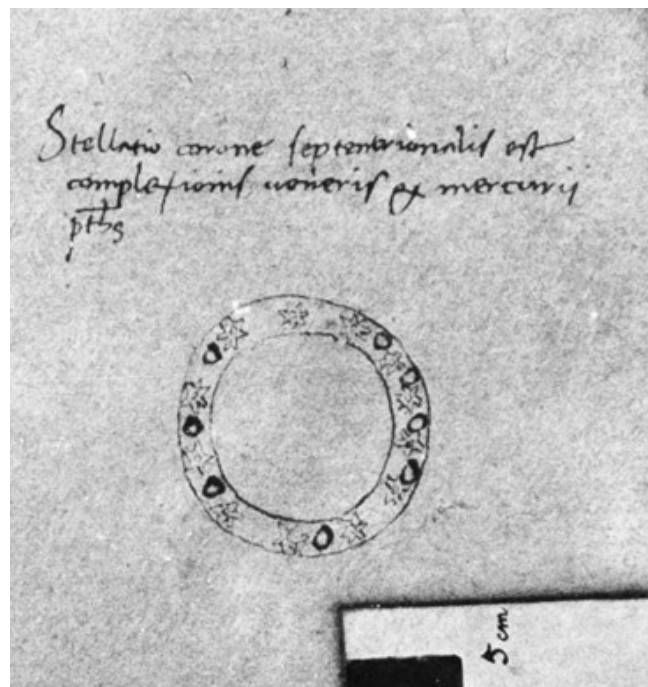 Stellatio corone septentrionalis est
complexionis veneris et mercurii
5 cm